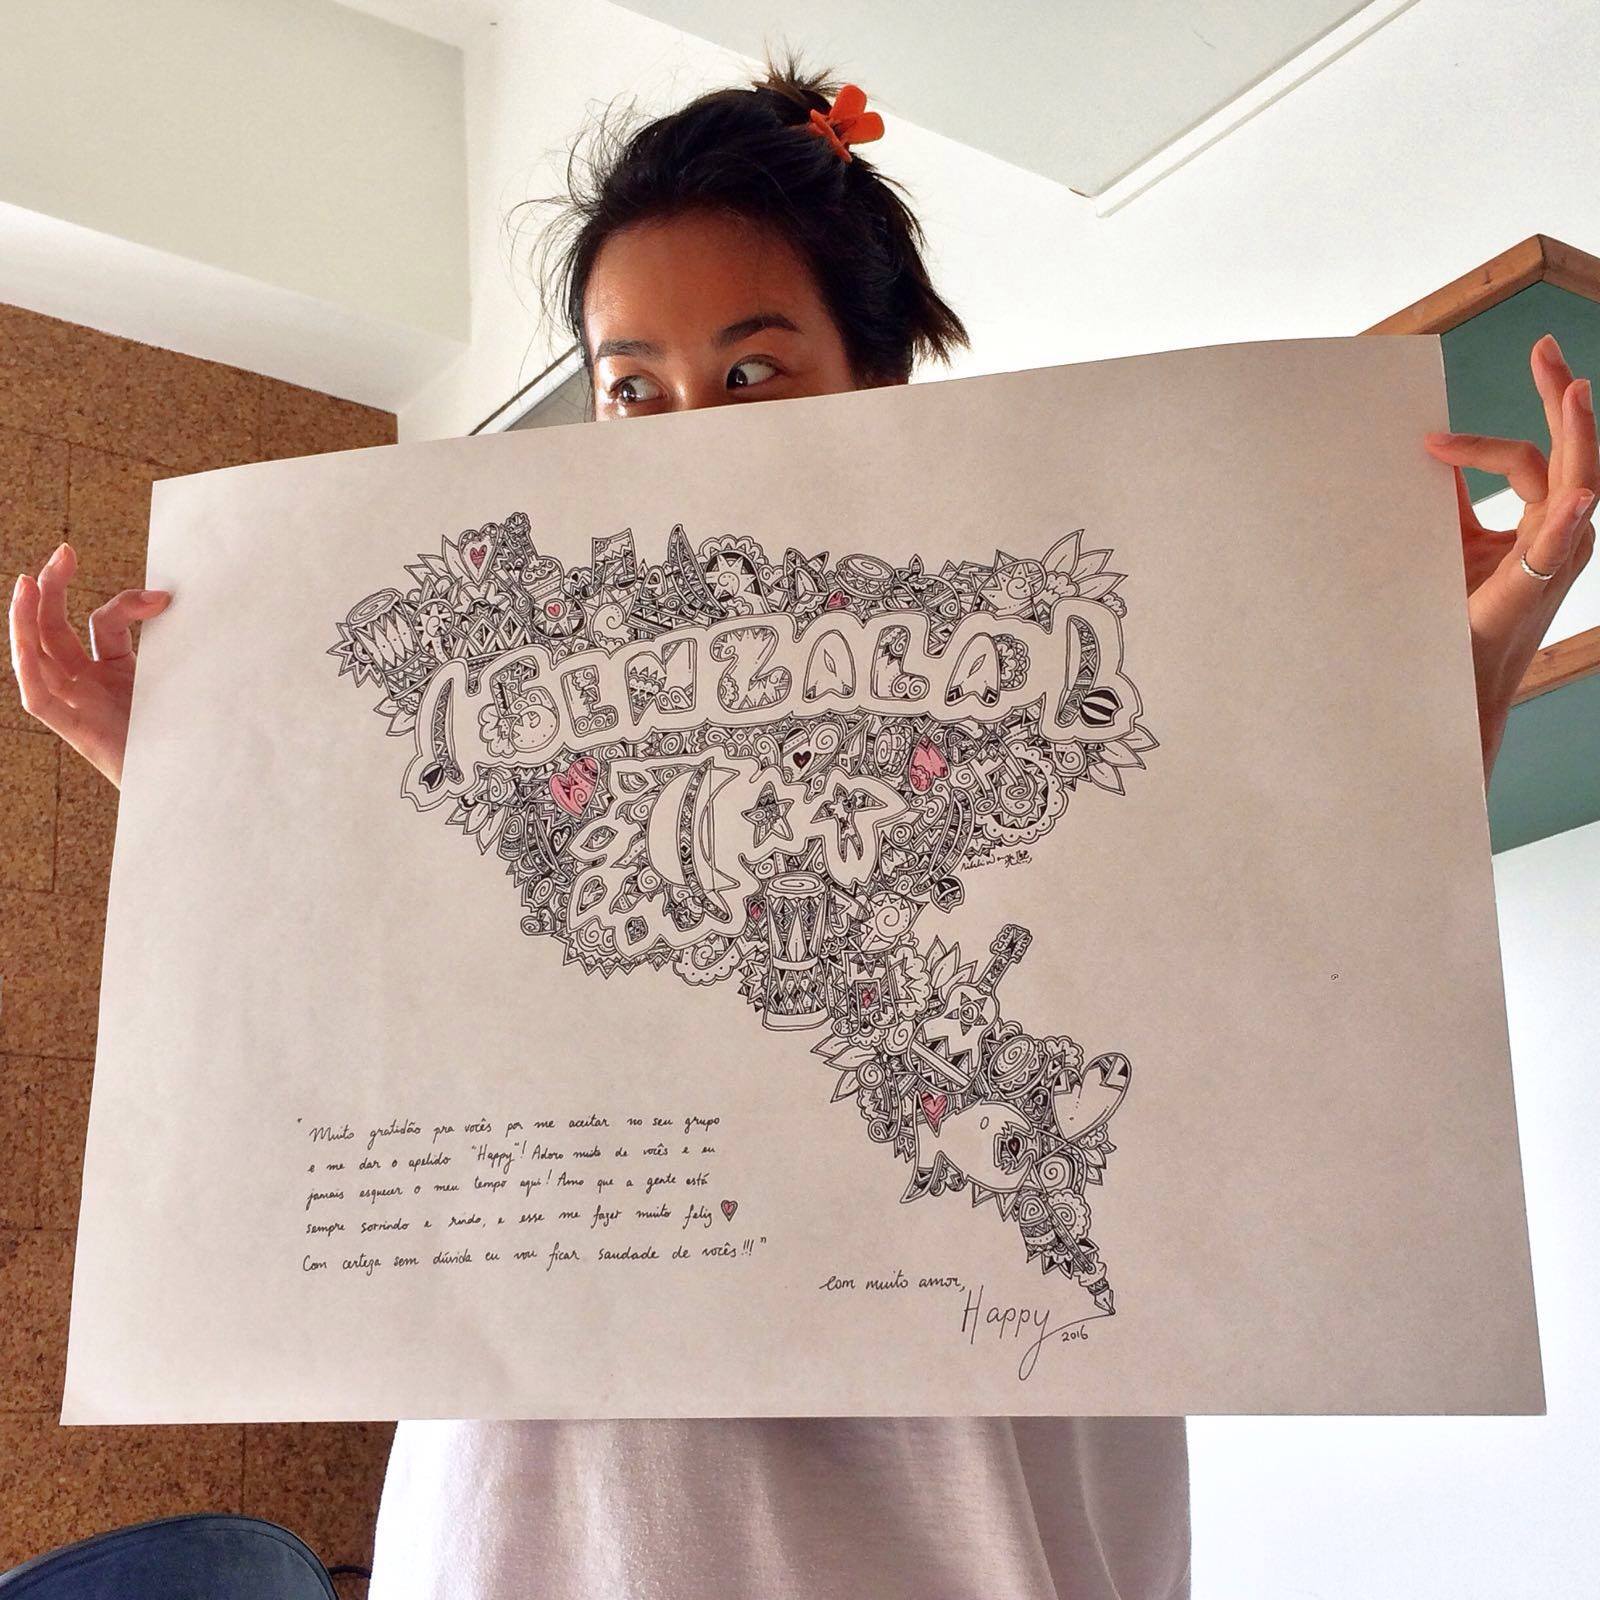 SENZALA
"Muito gratidão pra vocês por me aceitar no seu grupo
e me dar o apelido "Happy"! Adoro muito de vocês e eu
jamais esquecer o meu tempo aqui! Amo que a gente está
sempre sorrindo e rindo, e esse me fazer muito feliz
Com certeza sem dúvida eu vou ficar saudade de vocês!!!"
Com muito amor,
Happy
2016